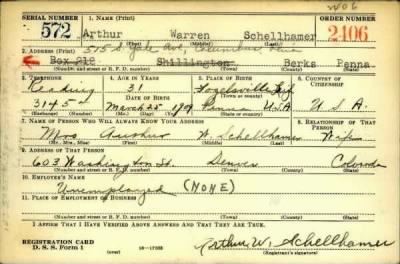 W06
SERIAL NUMBER 1. NAME (Print) ORDER NUMBER
572 Arthur Warren Schellhamer 2406
(First) (Middle) (Last)
2. ADDRESS (Print) 515 S. Yale Ave, Columbus, Ohio
Box 212 Shillington Berks Penna
(Number and street or R. F. D. number) (Town) (County) (State)
3. TELEPHONE 4. AGE IN YEARS 5. PLACE OF BIRTH 6. COUNTRY OF CITIZENSHIP
Reading 31 Fogelsville
DATE OF BIRTH (Town or county)
3145 March 25 1909 Pen USA U.S.A.
(Exchange) (Number) (Mo.) (Day) (Yr.) (State or country)
7. NAME OF PERSON WHO WILL ALWAYS KNOW YOUR ADDRESS 8. RELATIONSHIP OF THAT PERSON
Mrs Arthur W. Schellhamer Wife
(Mr., Mrs., Miss) (First) (Middle) (Last)
9. ADDRESS OF THAT PERSON
603 Washington St. Denver Colorado
(Number and street or R. F. D. number) (Town) (County) (State)
10. EMPLOYER'S NAME
Unemployed (NONE)
11. PLACE OF EMPLOYMENT OR BUSINESS
(Number and street or R. F. D. number) (Town) (County) (State)
I AFFIRM THAT I HAVE VERIFIED ABOVE ANSWERS AND THAT THEY ARE TRUE.
REGISTRATION CARD
D. S. S. Form 1 (over) 16-17105 Arthur W. Schellhamer
(Registrant's signature)